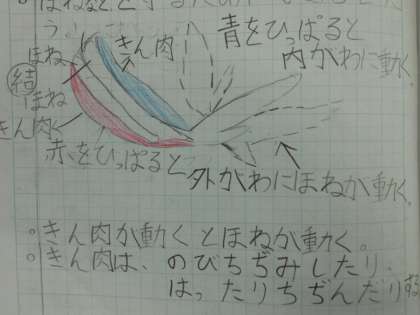 う。
ほね
きん肉
青をひっぱると
内がわに動く。
結
ほね
きん肉
赤をひっぱると
外がわにほねが動く。
。きん肉が動くとほねが動く。
。きん肉は、のびちぢみしたり、
はったりちぢんだりする